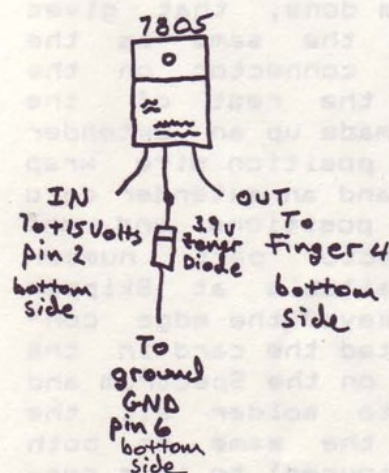 7805
IN
OUT
To +15 Volts
pin 2
bottom
side
3.9v
zener
Diode
To
Finger 4
bottom
side
To
ground
GND
pin 6
bottom
side